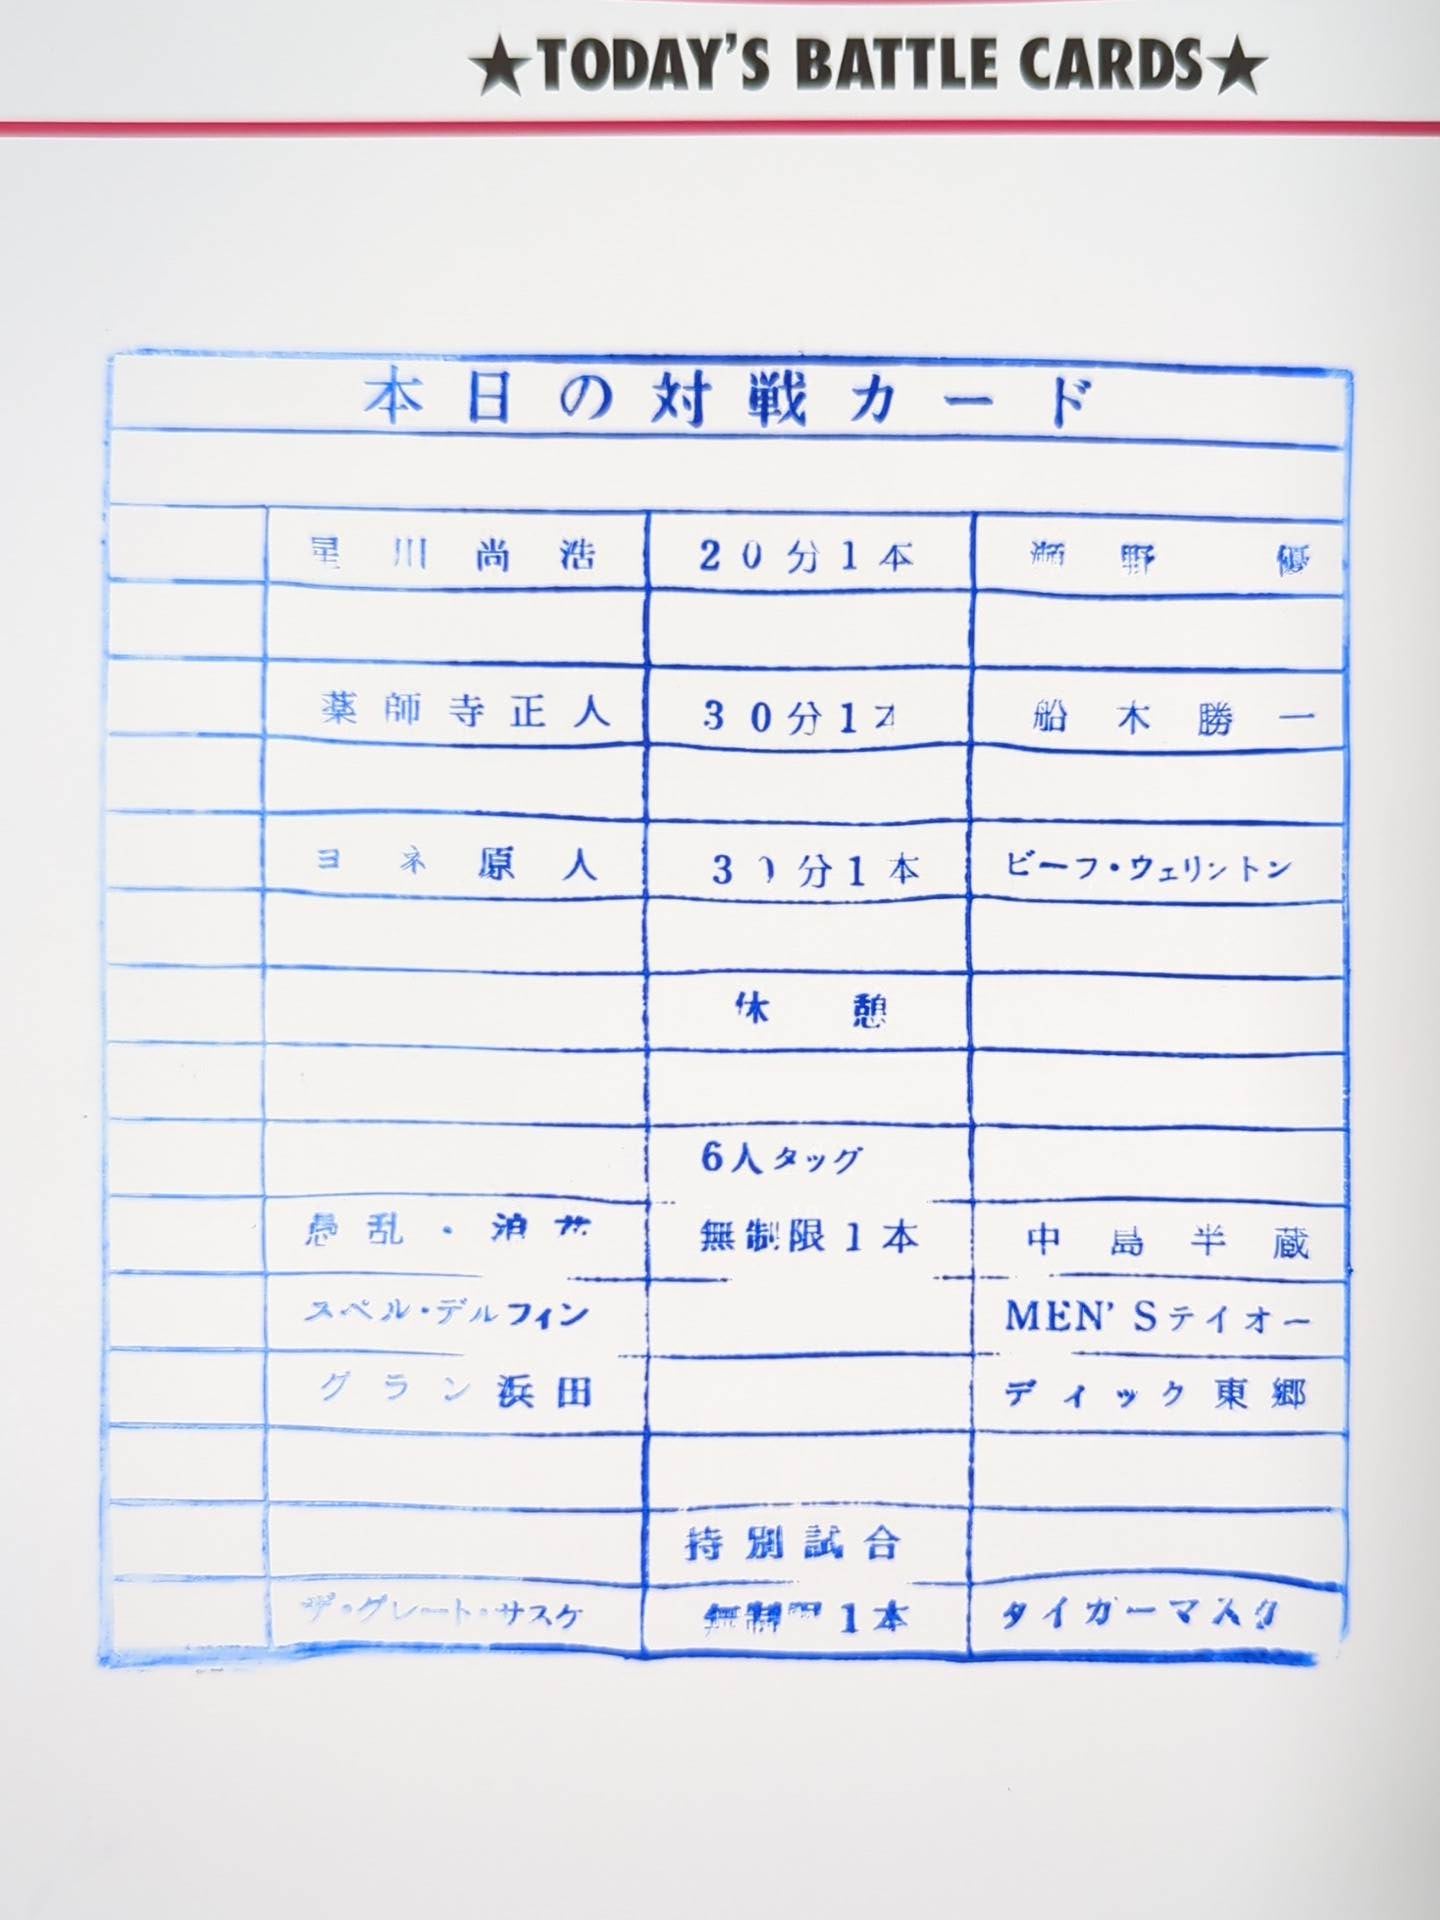 ★TODAY'S BATTLE CARDS★
本日の対戦カード
星川尚浩 20分1本 瀬野 優
薬師寺正人 30分1本 船木勝一
ヨネ原人 30分1本 ビーフ・ウェリントン
休憩
6人タッグ
愚乱・浪花 無制限1本 中島半蔵
スペル・デルフィン MEN'Sテイオー
グラン浜田 ディック東郷
特別試合
ザ・グレート・サスケ 無制限1本 タイガーマスク